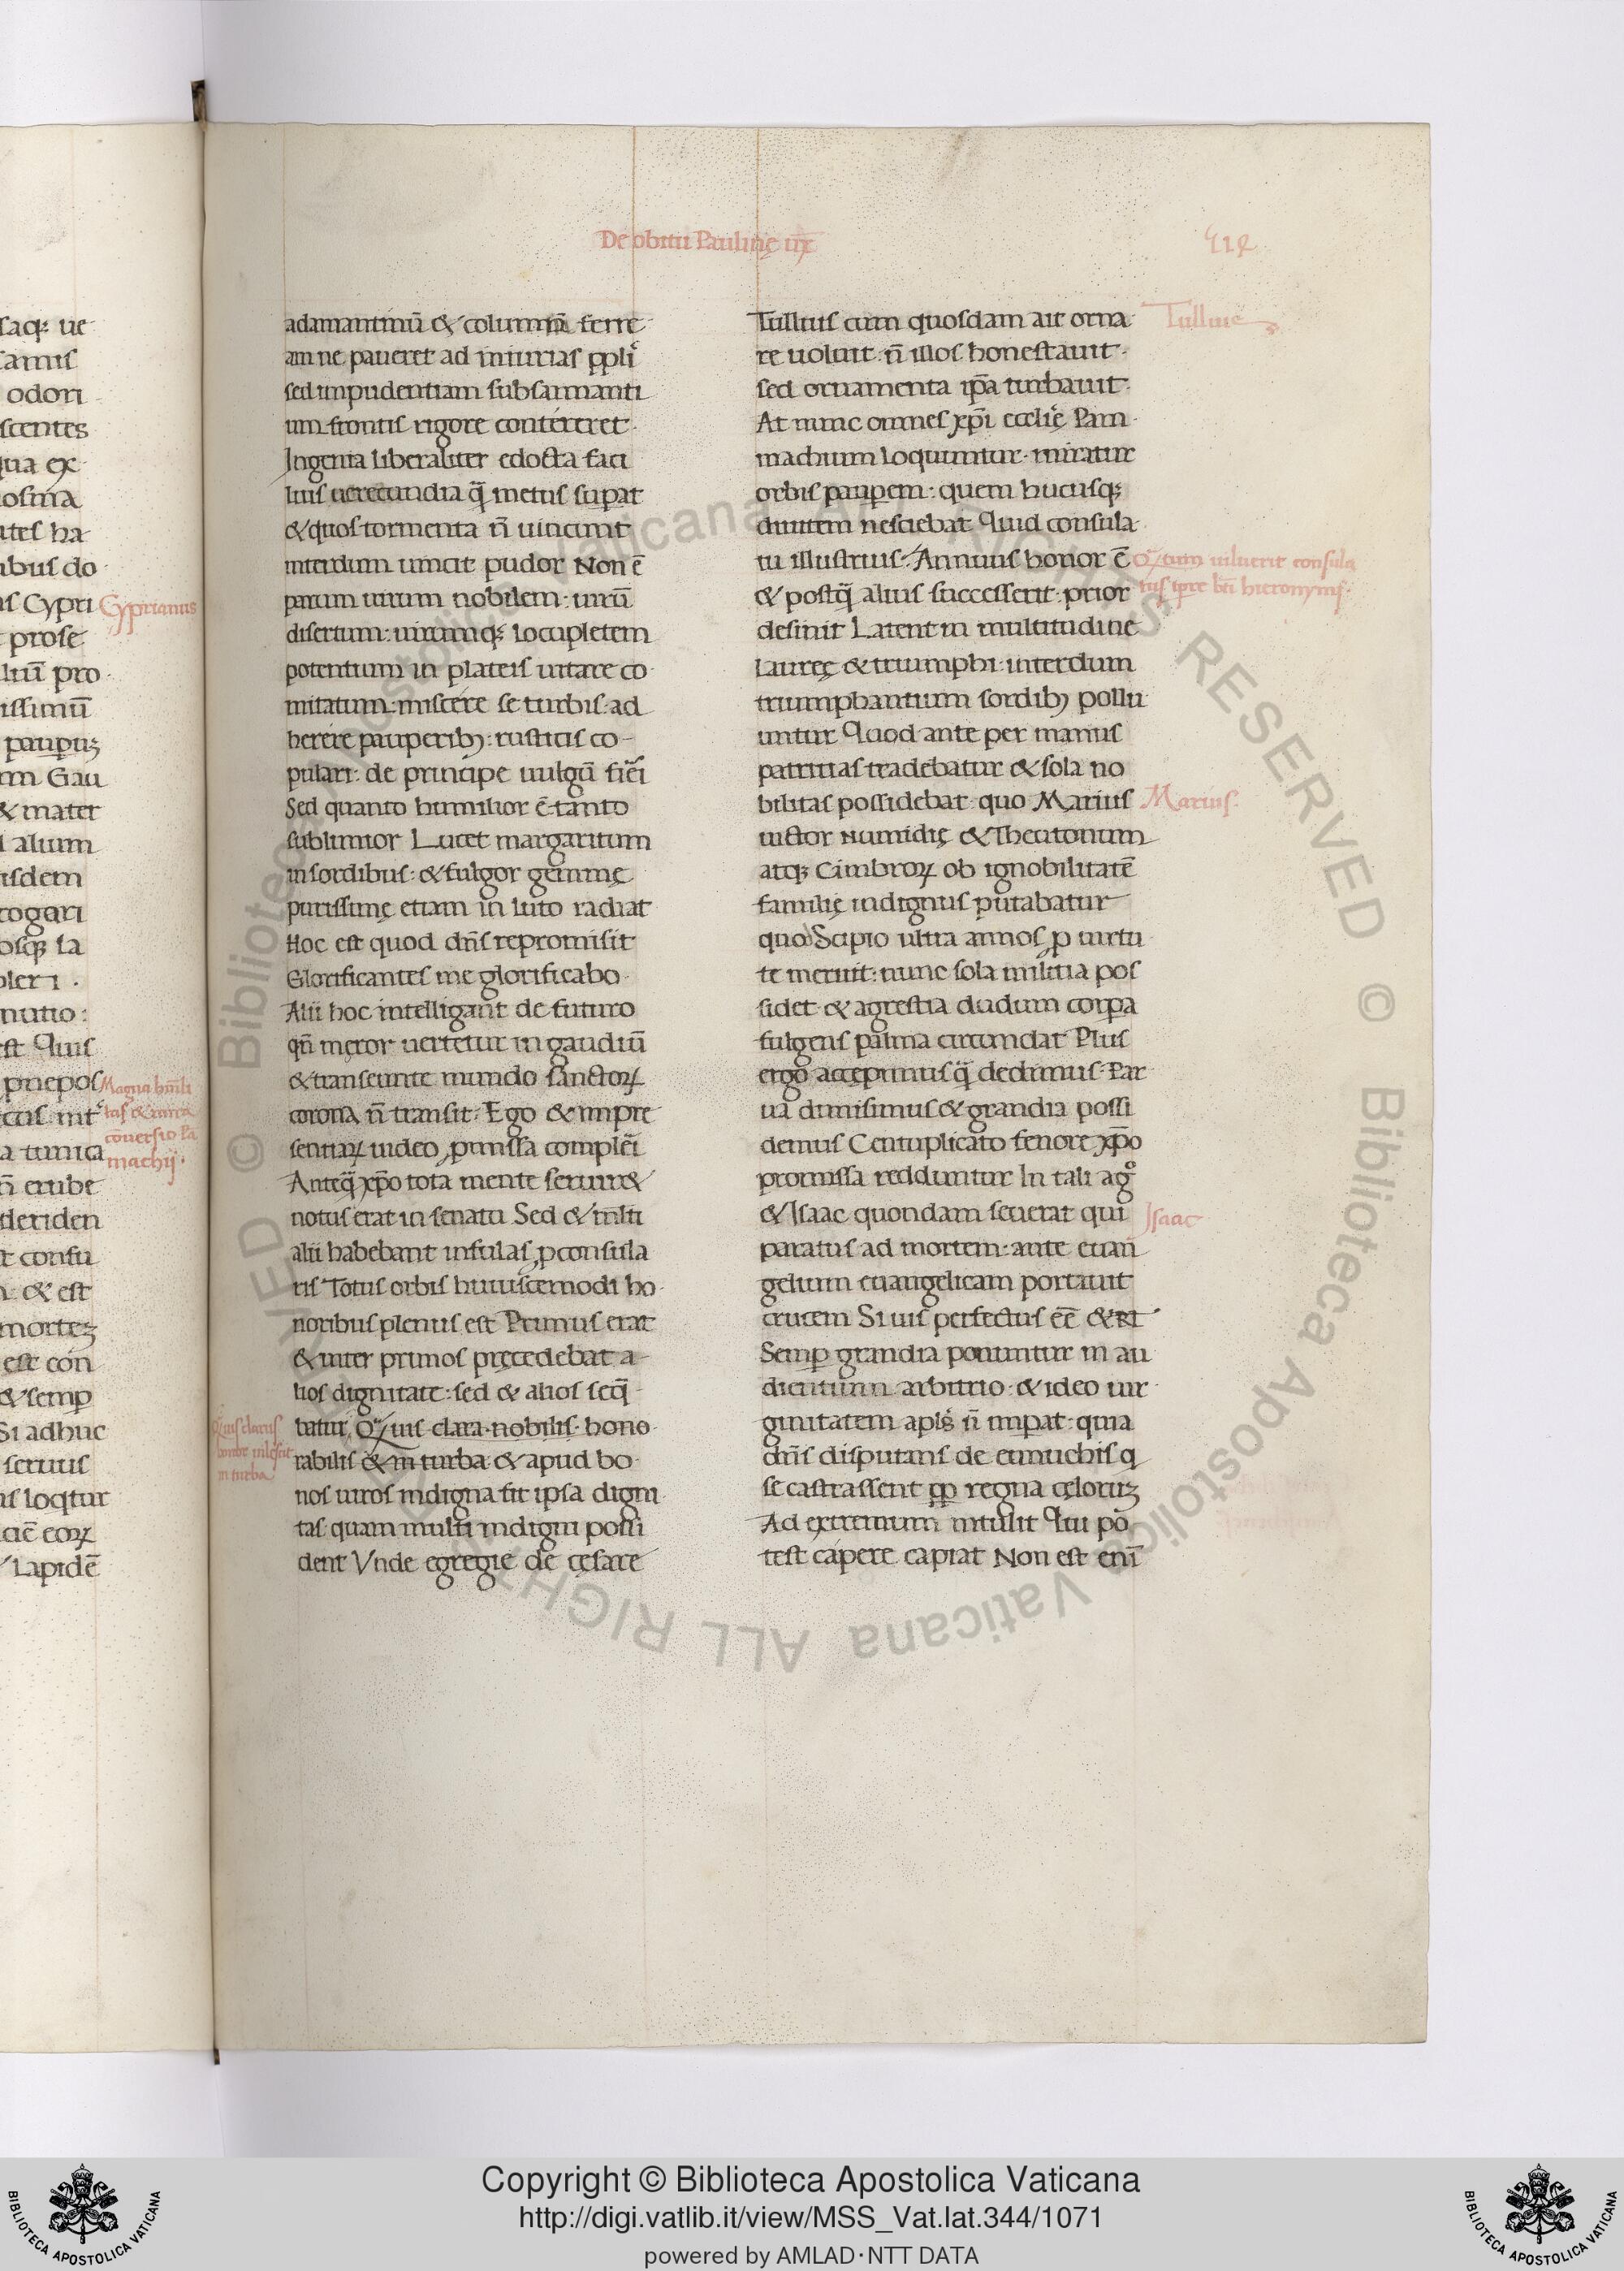 De obitu Paulinę ux̄
412
saqꝫ ue
samis
odori
scentes
qua ex
osma
ates ha
ibus do
us Cypri
Cyprianus
prose
liū pro
issimū
paupuꝫ
m Gau
& mater
alium
isdem
rogari
osqꝫ la
pleri .
nutio:
est Quis
pnepos
Magna hūili
tas & mira
cōuersio Pā
machij.
a tunica
n̄ erube
deriden
t confu
& est
morteꝫ
est con
& semp
Si adhuc
seruus
is loqtur
ciē eoꝝ
Lapidē
adamantinū & columnā ferre
am ne paueret ad iniurias ppli
sed impudentiam subsannanti
um frontis rigore contereret.
Ingenia liberaliter edocta faci
lius uerecundia q̄ metus supat
& quos tormenta n̄ uincunt
interdum uincit pudor Non ē
parum uirum nobilem: uirū
disertum: uirumqꝫ locupletem
potentium in plateis uitare co
mitatum: miscere se turbis: ad
herere pauperibꝫ: rusticis co-
pulari: de principe uulgū fiēi
Sed quanto humilior ē tanto
sublimior Lucet margaritum
in sordibus: & fulgor gemmę
purissimę etiam in luto radiat
Hoc est quod dn̄s repromisit
Glorificantes me glorificabo.
Alii hoc intelligant de futuro
qn̄ męror uertetur in gaudiū
& transeunte mundo sanctoꝝ
corona n̄ transit: Ego & inpre
sentiaꝝ uideo ꝓmissa complēi
Anteq̄ xp̄o tota mente seruir&
notus erat in senatu Sed & m̄lti
alii habebant insulas ꝓconsula
ris Totus orbis huiuscemodi ho
noribus plenus est Primus erat
& inter primos pręcedebat a-
lios dignitate: sed & alios seq̄
batur Quis clarus
honore uilescit
in turba
batur Quis clara nobilis hono
rabilis & in turba & apud bo
nos uiros indigna fit ipsa digni
tas quam multi indigni possi
dent Vnde egregie de cęsare
Tullius cum quosdam ait orna
Tullius
re uoluit: n̄ illos honestauit.
sed ornamenta ip̄a turbauit
At nunc omnes xp̄i ecclię Pam
machium loquuntur. miratur
orbis paupem: quem hucusqꝫ
diuitem nesciebat Quid consula
tu illustrius. Annuus honor ē
Qͣtum uiluerit consula
tus tp̄re bt̄i hieronymi.
& postq̄ alius successerit: prior
desinit Latent in multitudine
laureę & triumphi: interdum
triumphantium sordibꝫ pollu
untur Quod ante per manus
patritias tradebatur & sola no
bilitas possidebat quo Marius
Marius.
uictor Numidię & Theutonum
atqꝫ Cimbroꝝ ob ignobilitatē
familię indignus putabatur
quo Scipio ultra annos ꝓ uirtu
te meruit: nunc sola militia pos
sidet & agrestia dudum corpa
fulgens palma circundat Plus
ergo accepimus q̄ dedimus. Par
ua dimisimus & grandia possi
demus Centuplicato fenore xp̄o
promissa redduntur In tali agͦ
& Isaac quondam seuerat qui
Isaac
paratus ad mortem: ante euan
gelium euangelicam portauit
crucem Si uis perfectus eē & rł
Semp grandia ponuntur in au
dientium arbitrio: & ideo uir
ginitatem apls̄ n̄ impat: quia
dn̄s disputans de eunuchis q
se castrassent ꝓp regna cęloruꝫ
Ad extremum intulit Qui po
test capere capiat Non est enī
Copyright © Biblioteca Apostolica Vaticana
http://digi.vatlib.it/view/MSS_Vat.lat.344/1071
powered by AMLAD·NTT DATA
BIBLIOTECA APOSTOLICA VATICANA
BIBLIOTECA APOSTOLICA VATICANA
© Biblioteca Apostolica Vaticana ALL RIGHTS RESERVED © Biblioteca Apostolica Vaticana ALL RIGHTS RESERVED